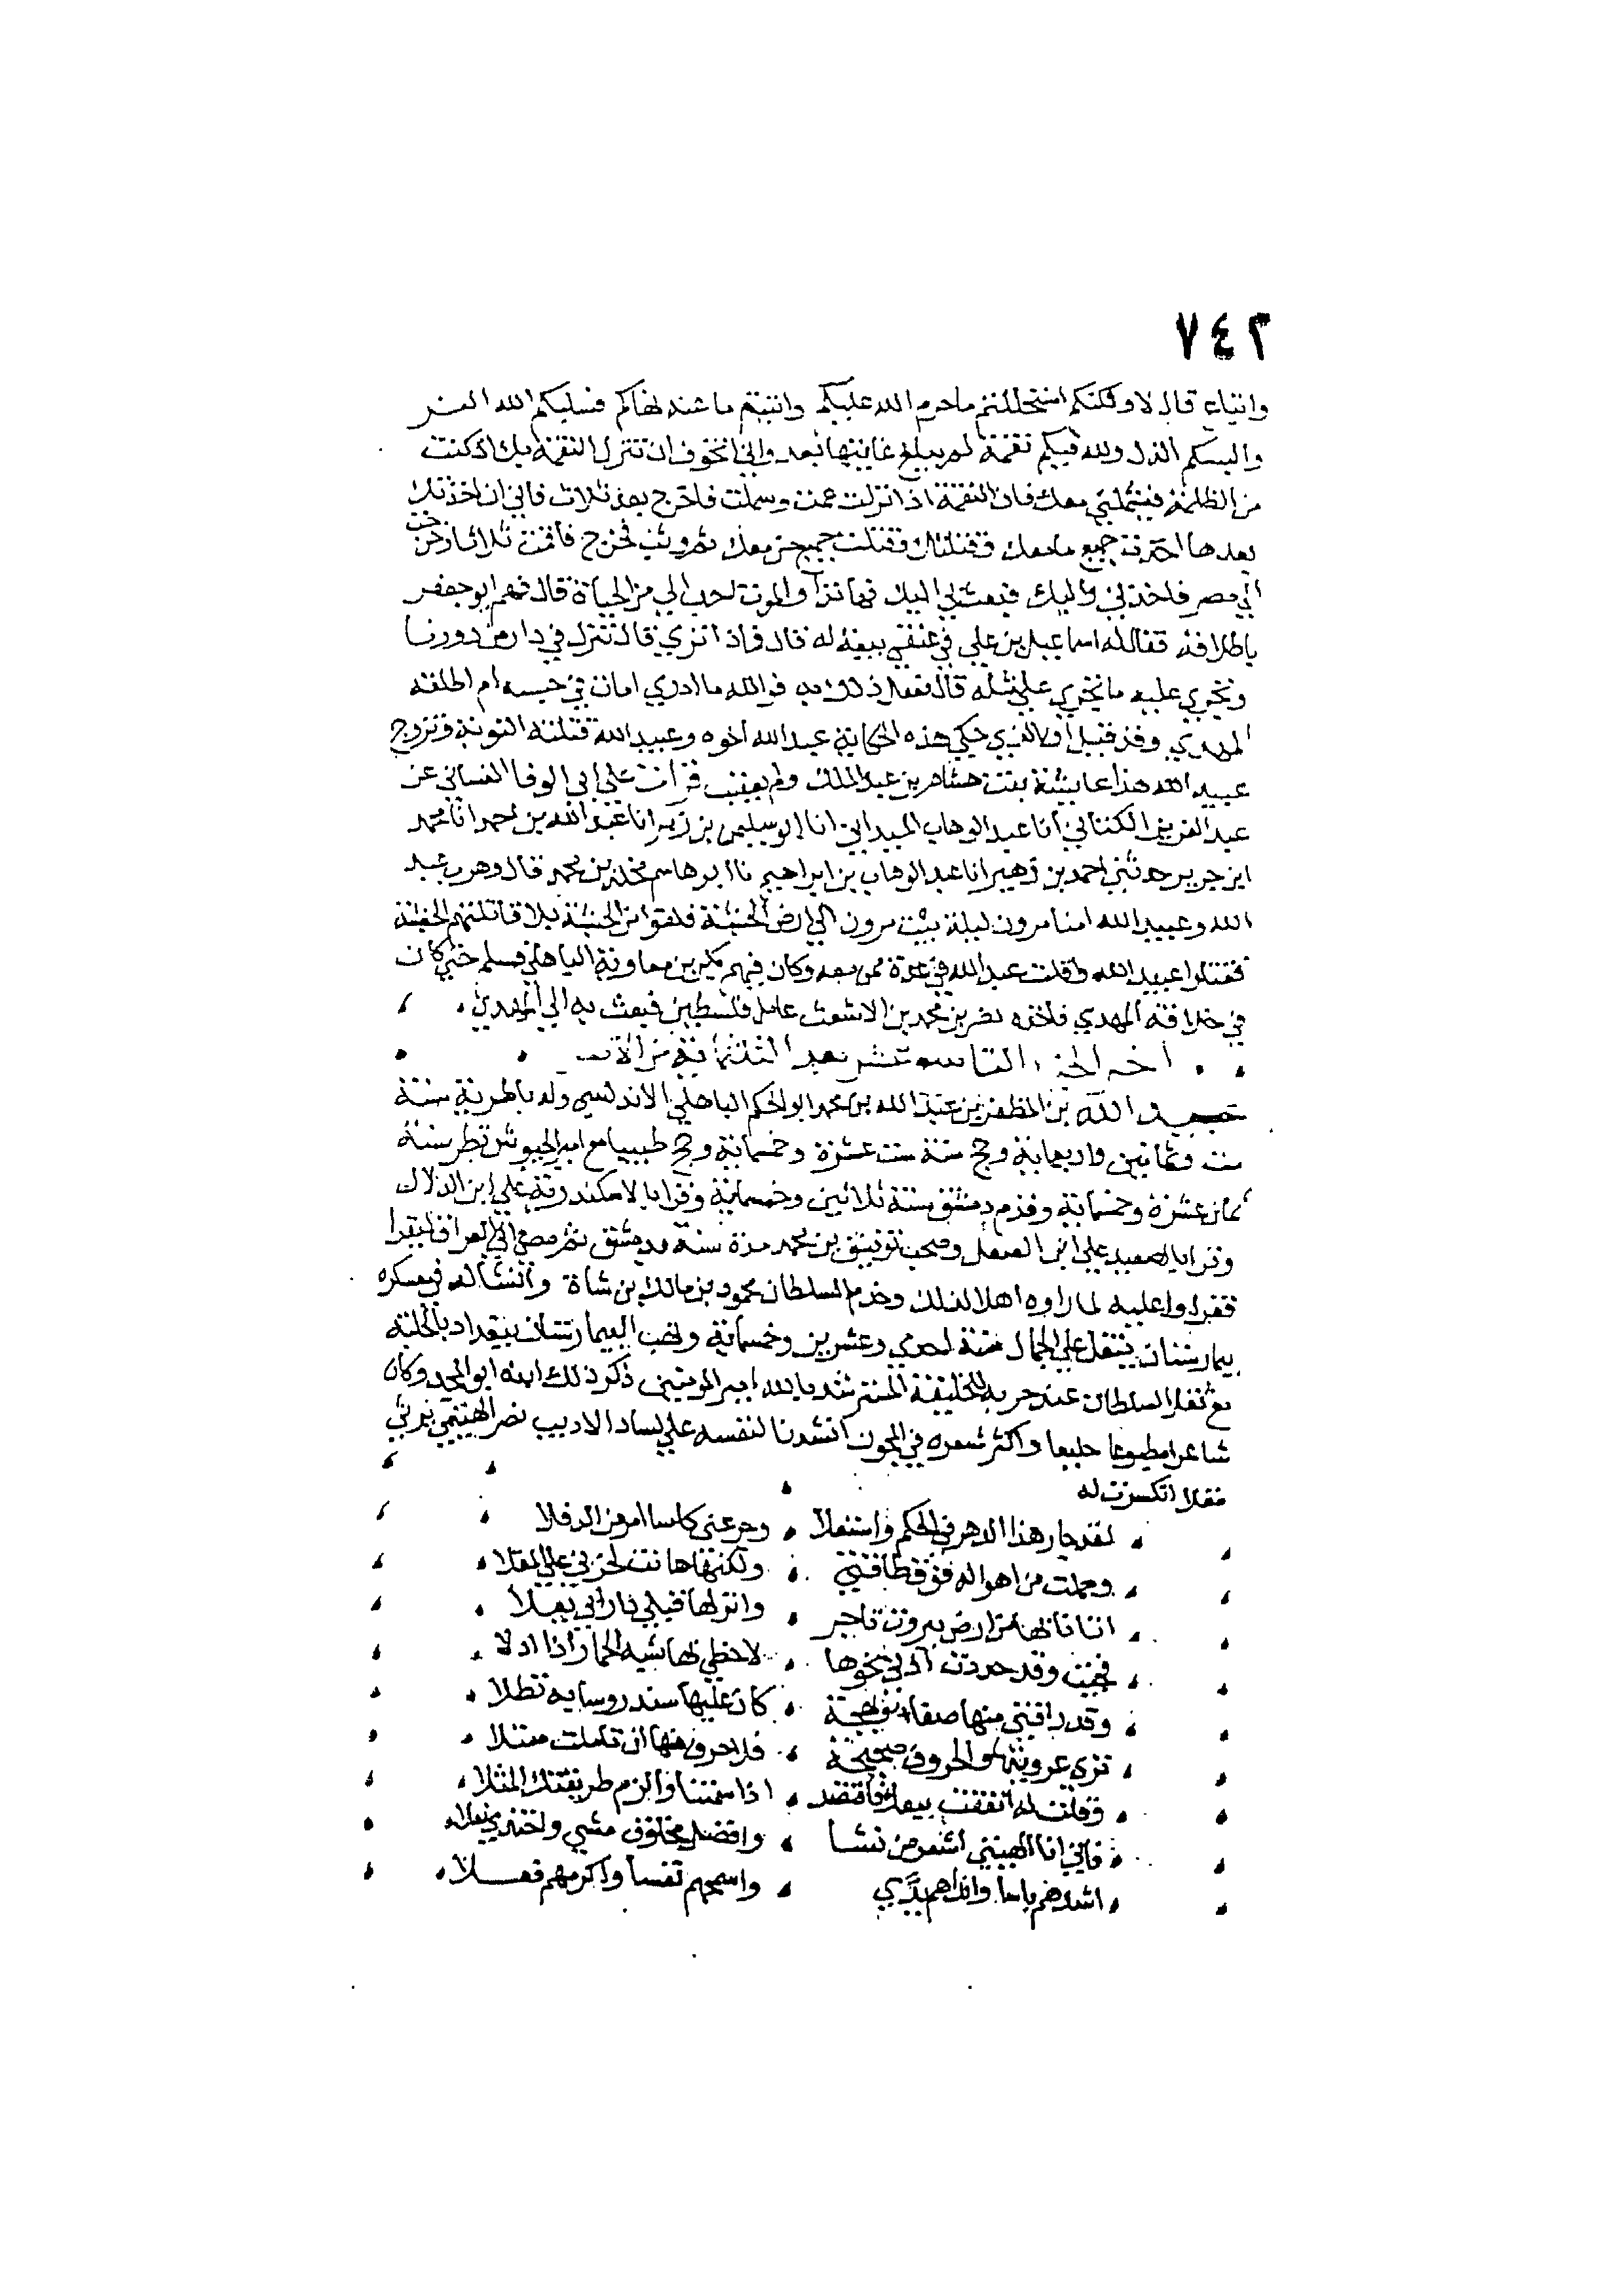 ٧٤٣
واتباع قال لا ولكنكم استحللتم ماحرم الله عليكم واتيتم ما عنه نهاكم فسلبكم الله العز
والبسكم الذل ولله فيكم نقمة لم يبلغ غايتها بعد واني اتخوف ان تنزل النقمة بك اذ كنت
من الظلمة فيشملني معك فان النقمة اذا نزلت عمت وشملت فاخرج بعد ثلاث فاني ان اخذتك
بعدها اخذت جميع مامعك وقتلتك وقتلت جميع من معك ثم وثب فخرج فاقمت ثلاثا وخرجت
الي مصر فاخذني واليك فبعث بي اليك فها انذا والموت احب الي من الحياة قال فهم ابو جعفر
باطلاقه فقال له اسماعيل بن علي في عنقي بيعة له قال فماذا تري قال تنزل في دار من دورنا
ونجري عليه ما نجري علي مثله قال ففعل ذلك به فوالله ما ادري امات في حبسه ام اطلقه
المهدي وقد قيل ان الذي حكي هذه الحكاية عبد الله اخوه وعبيد الله قتلته النوبة وتزوج
عبيد الله هذا عايشة بنت هشام بن عبد الملك ولم يعقب قرات علي ابي الوفا الغساني عن
عبد العزيز الكتاني انا عبد الوهاب الميداني انا ابو سليمن بن زبر انا عبد الله بن احمد انا محمد
ابن جرير حدثني احمد بن زهير انا عبد الوهاب بن ابراهيم نا ابو هاشم مخلد بن محمد قال وهرب عبد
الله وعبيد الله ابنا مرون ليلة بيت مرون الي ارض الحبشة فلقوا من الحبشة بلا قاتلتهم الحبشة
فقتلوا عبيد الله وافلت عبد الله في عدة ممن معه وكان فيهم بكر بن معاوية الباهلي فسلم حتي كان
في خلافة المهدي فاخذه نصر بن محمد بن الاشعث عامل فلسطين فبعث به الي المهدي
اخر الجزء التاسع عشر بعد الثلثماية من الاصل
عبيد الله بن المظفر بن عبد الله بن محمد ابو الحكم الباهلي الاندلسي ولد بالمرية سنة
ست وثمانين واربعماية وحج سنة ست عشرة وخمسماية وحج طبيبا مع امير الجيوش نظر سنة
ثمان عشرة وخمسماية وقدم دمشق سنة ثلاثين وخمسماية وقرا بالاسكندرية علي ابن الدلال
وقرا بالصعيد علي ابن الصيقل وصحب توفيق بن محمد مدة سنة بدمشق ثم مضي الي العراق ليقرا
فقراوا عليه لما راوه اهلا لذلك وخدم السلطان محمود بن مالك بن شاة وانشا له في معسكره
بيمارستان ينتقل علي الجمال سنة احدي وعشرين وخمسماية ونصب البيمارستان ببغداد بالحلبة
مع ثقل السلطان عند حربه للخليفة المسترشد بالله امير المومنين ذكر ذلك ابنه ابو المجد وكان
شاعرا مطبوعا خليعا واكثر شعره في المجون انشدنا لنفسه علي لسان الاديب نصر الهيتي يرثي
مقلا انكسرت له
لقد جار هذا الدهر في الحكم واستعلا وجرعني كاسا امر من الدفلا
وحملت من اهواله فوق طاقتي ولكنها هانت لحزني علي المقلا
اتانا بها من ارض بيروت تاجر وانزلها قبلي دار ابي يعلا
فجيت وقد حددت اذني نحوها لاخطي بها شبه الحمار اذا ادلا
وقد راقني منها صفاء وبهجة كان عليها سندروسا به تطلا
تري عروتيها والحروف صحيحة فلا حرف منها ان تاملت منثلا
وقلت له انفقت بيعك فاقتصد اذا سمتنا والزم طريقتك المثلا
فاني انا الهيتي اشعر من نشا وافضل مخلوق مشي واحتذي نعلا
اشدهم باسا واندا هم يدي واسمحهم نفسا واكرمهم فعلا